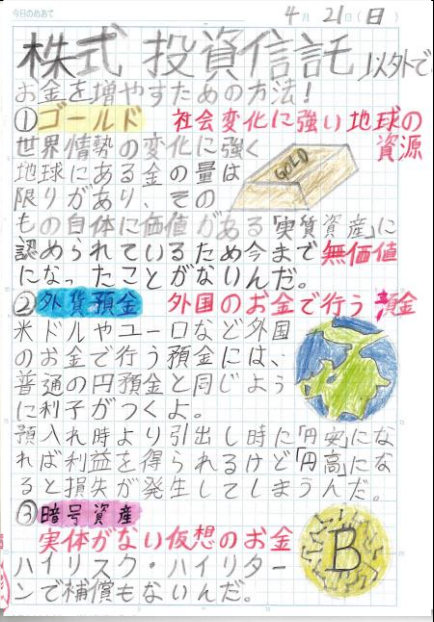 今日のめあて
4月21日(日)
株式 投資信託 以外で
お金を増やすための方法!
①ゴールド 社会変化に強い地球の資源
世界情勢の変化に強く
地球にある金の量は
限りがあり、その
もの自体に価値がある「実質資産」に
認められているため今まで無価値
になったことがないんだ。
GOLD
②外貨預金 外国のお金で行う預金
米ドルやユーロなど外国
のお金で行う預金には、
普通の円預金と同じよう
に利子がつくよ。
預入れ時より引出し時に「円安」にな
れば利益を得られるけど「円高」にな
ると損失が発生してしまうんだ。
③暗号資産
実体がない仮想のお金
ハイリスク・ハイリター
ンで補償もないんだ。
B